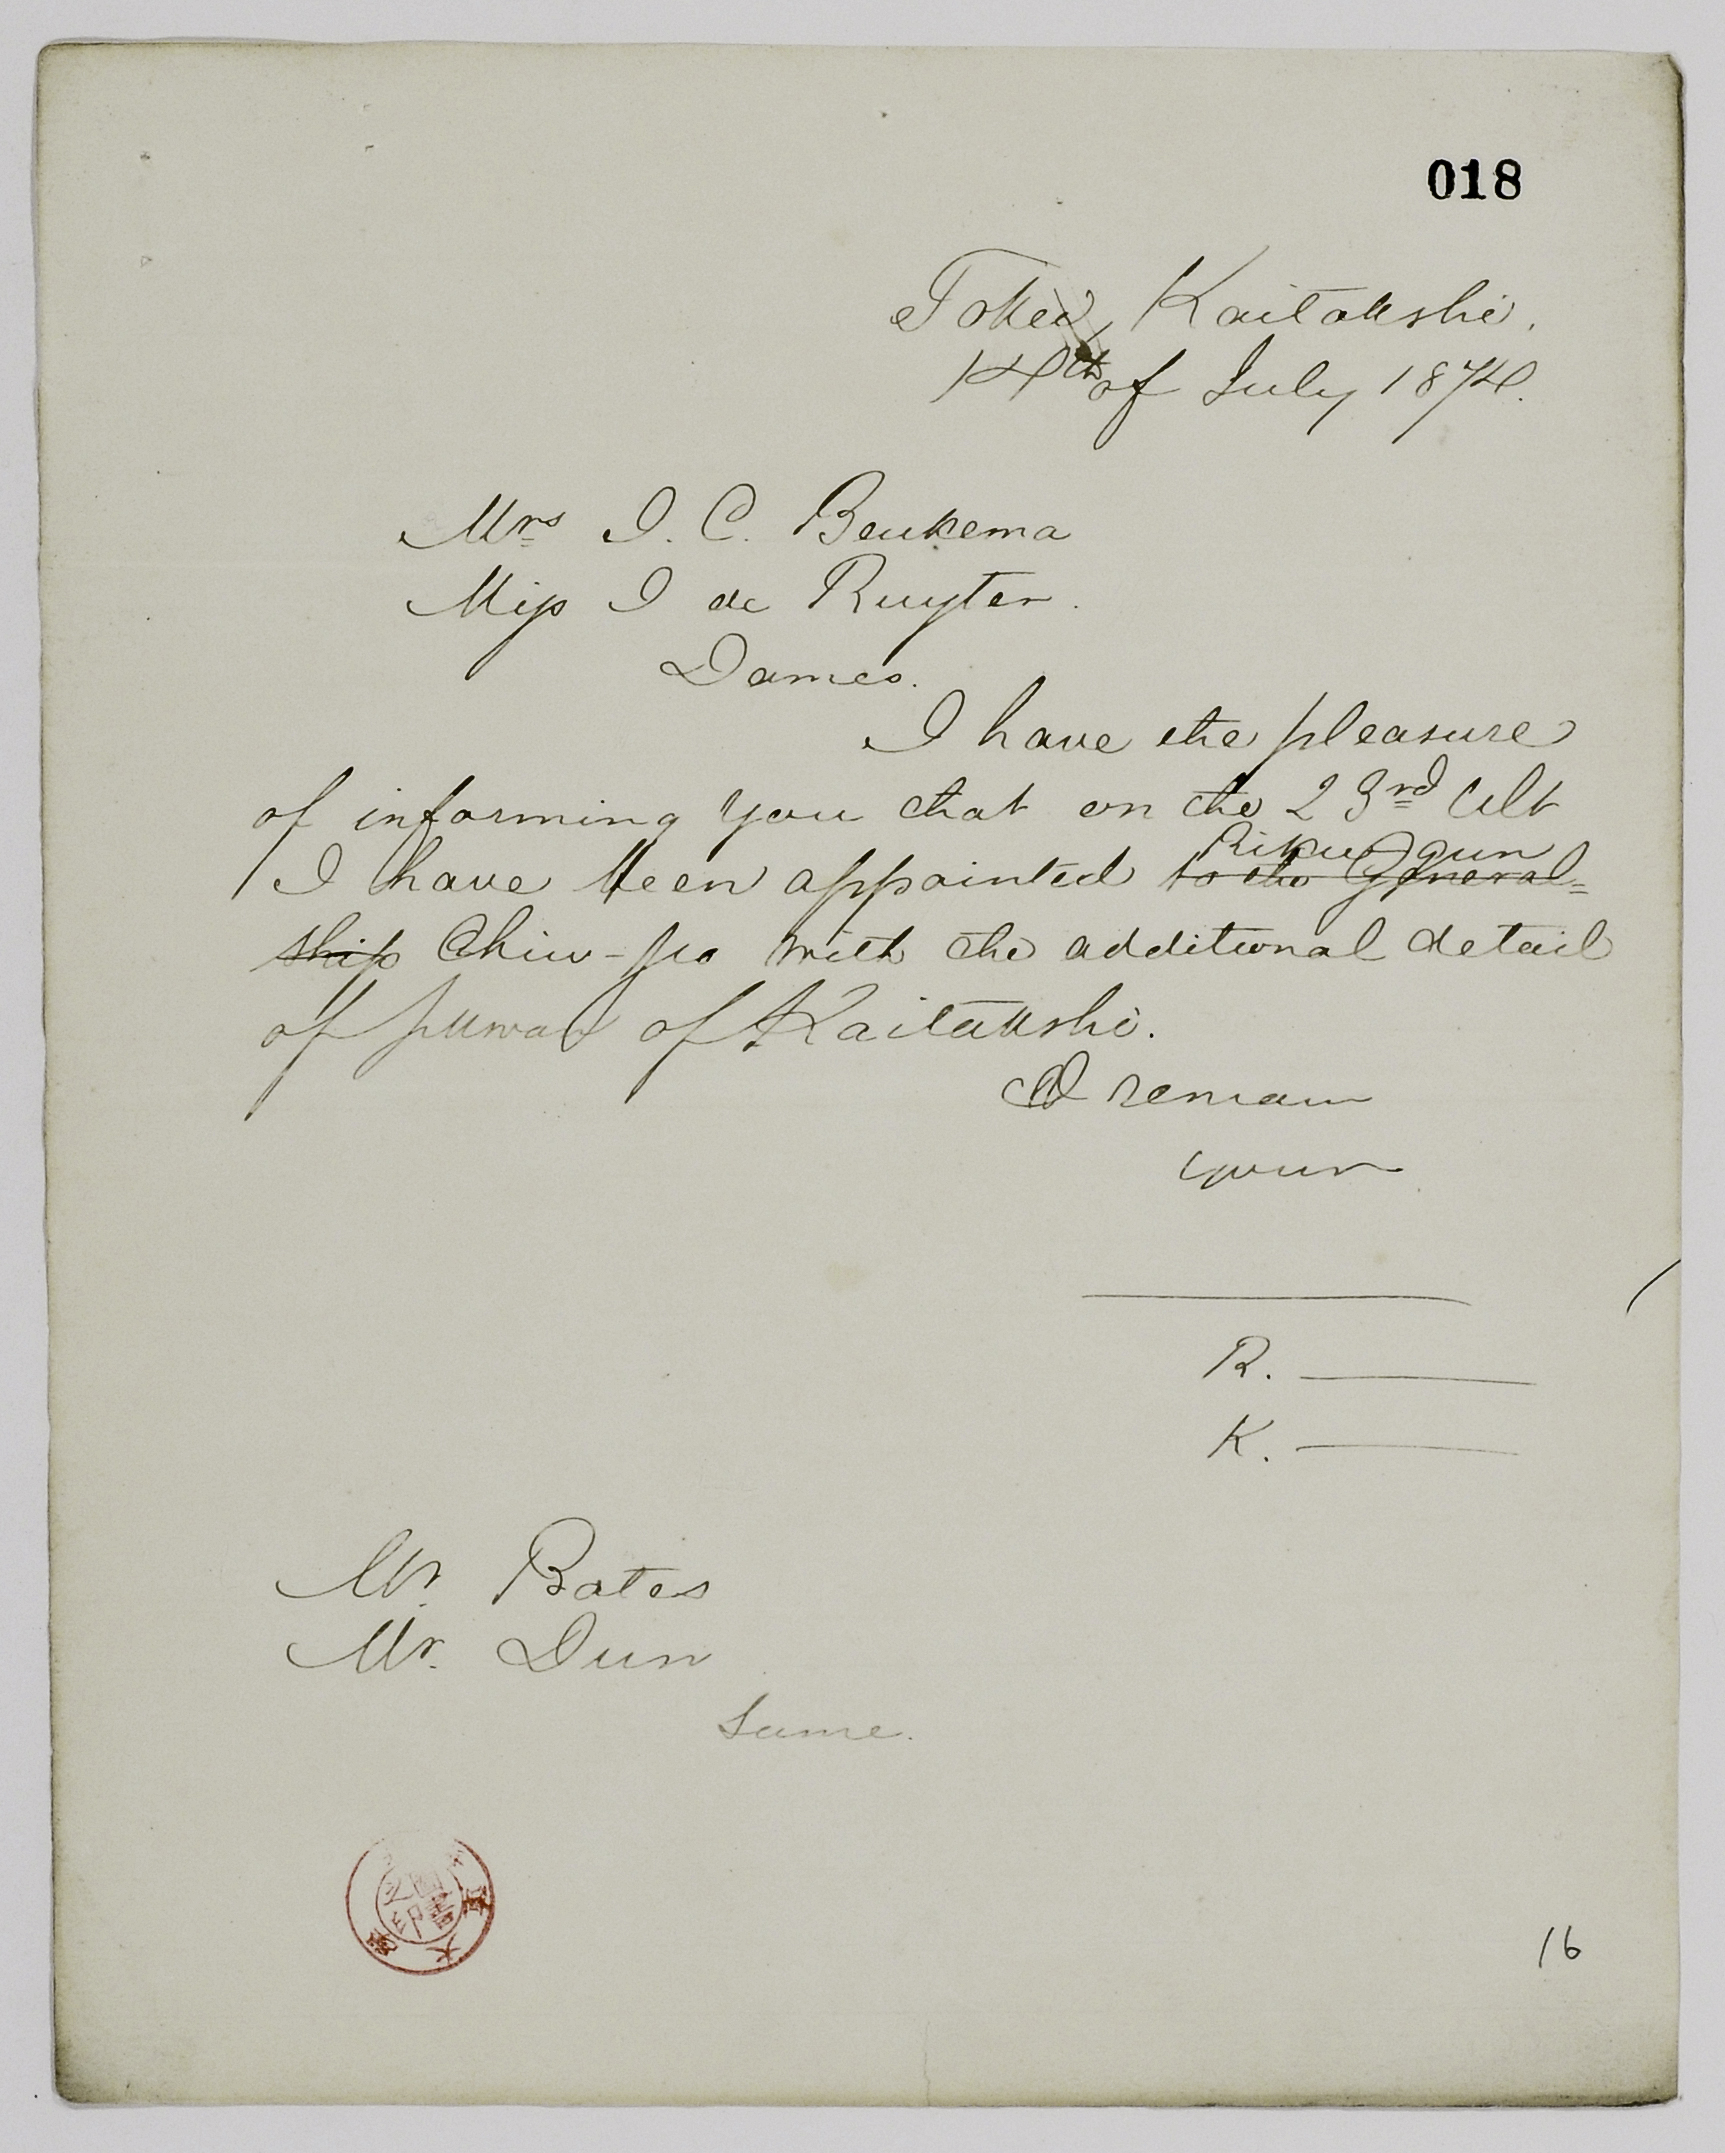 018
Tokei, Kaitakshi.
14th of July 1874.
Mrs I. C. Beukema
Miss I de Ruyter.
Dames.
I have the pleasure
of informing you that on the 23rd Ult
Riku-gun
I have been appointed to the General=
ship Chiu-jio with the additional detail
of of Kaitakshi.
I remain
your
R.
K.
Mr. Bates
Mr. Dun
Same.
圖書之印
16